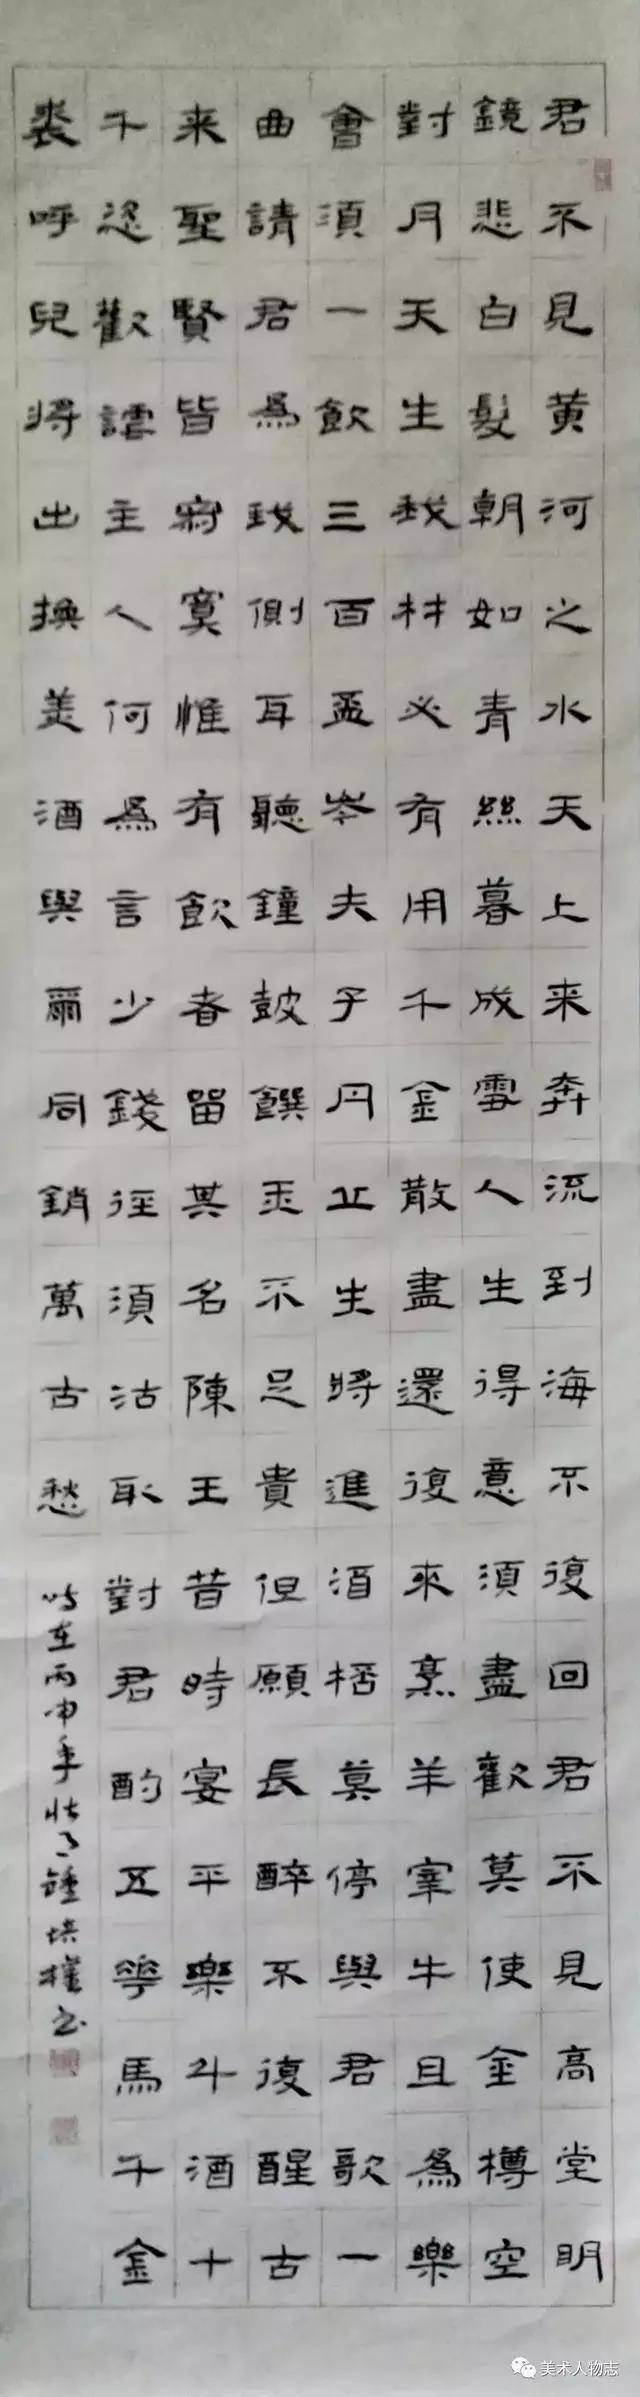 君不見黃河之水天上来奔流到海不復回君不見高堂明
鏡悲白髮朝如青絲暮成雪人生得意須盡歡莫使金樽空
對月天生我材必有用千金散盡還復來烹羊宰牛且爲樂
會須一飲三百盃岑夫子丹丘生將進酒桮莫停與君歌一
曲請君爲我側耳聽鐘鼓饌玉不足貴但願長醉不復醒古
来聖賢皆寂寞惟有飲者留其名陳王昔時宴平樂斗酒十
千恣歡謔主人何爲言少錢徑須沽取對君酌五華馬千金
裘呼兒將出換美酒與爾同銷萬古愁
時在丙申年壯月鍾培權书
美术人物志